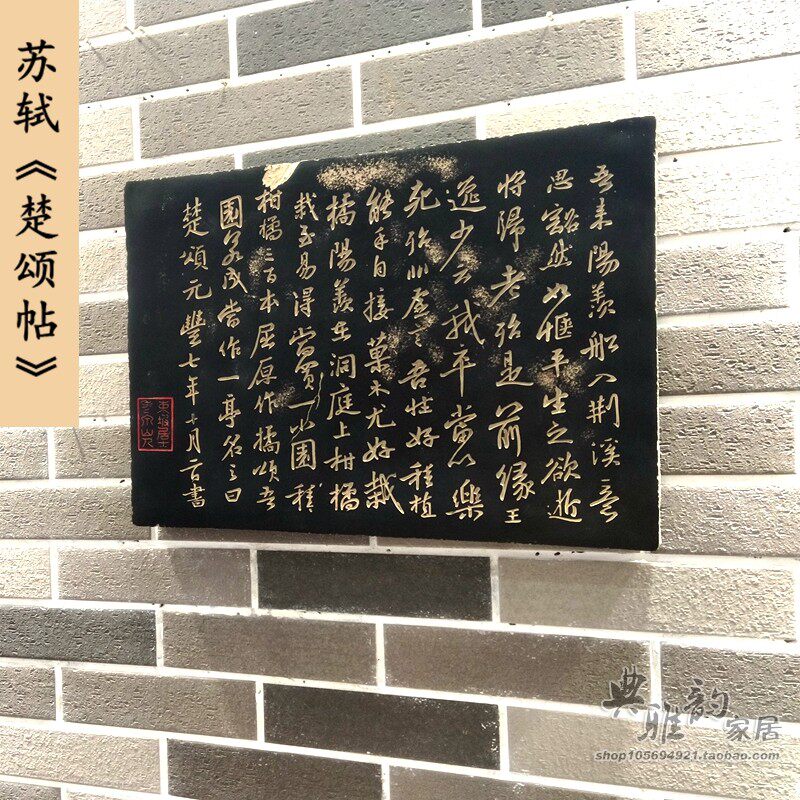 苏轼《楚颂帖》
吾来陽羨船入荆溪意
思豁然如惬平生之欲逝
将歸老殆是前緣王
逸少云我卒當以樂
死殆非虚言吾性好種植
能手自接菓木尤好栽
橘陽羨在洞庭上柑橘
栽至易得當買一小園種
柑橘三百本屈原作橘頌吾
園若成當作一亭名之曰
楚頌元豐七年十月二日書
東坡居士
典雅韵家居
shop105694921.taobao.com